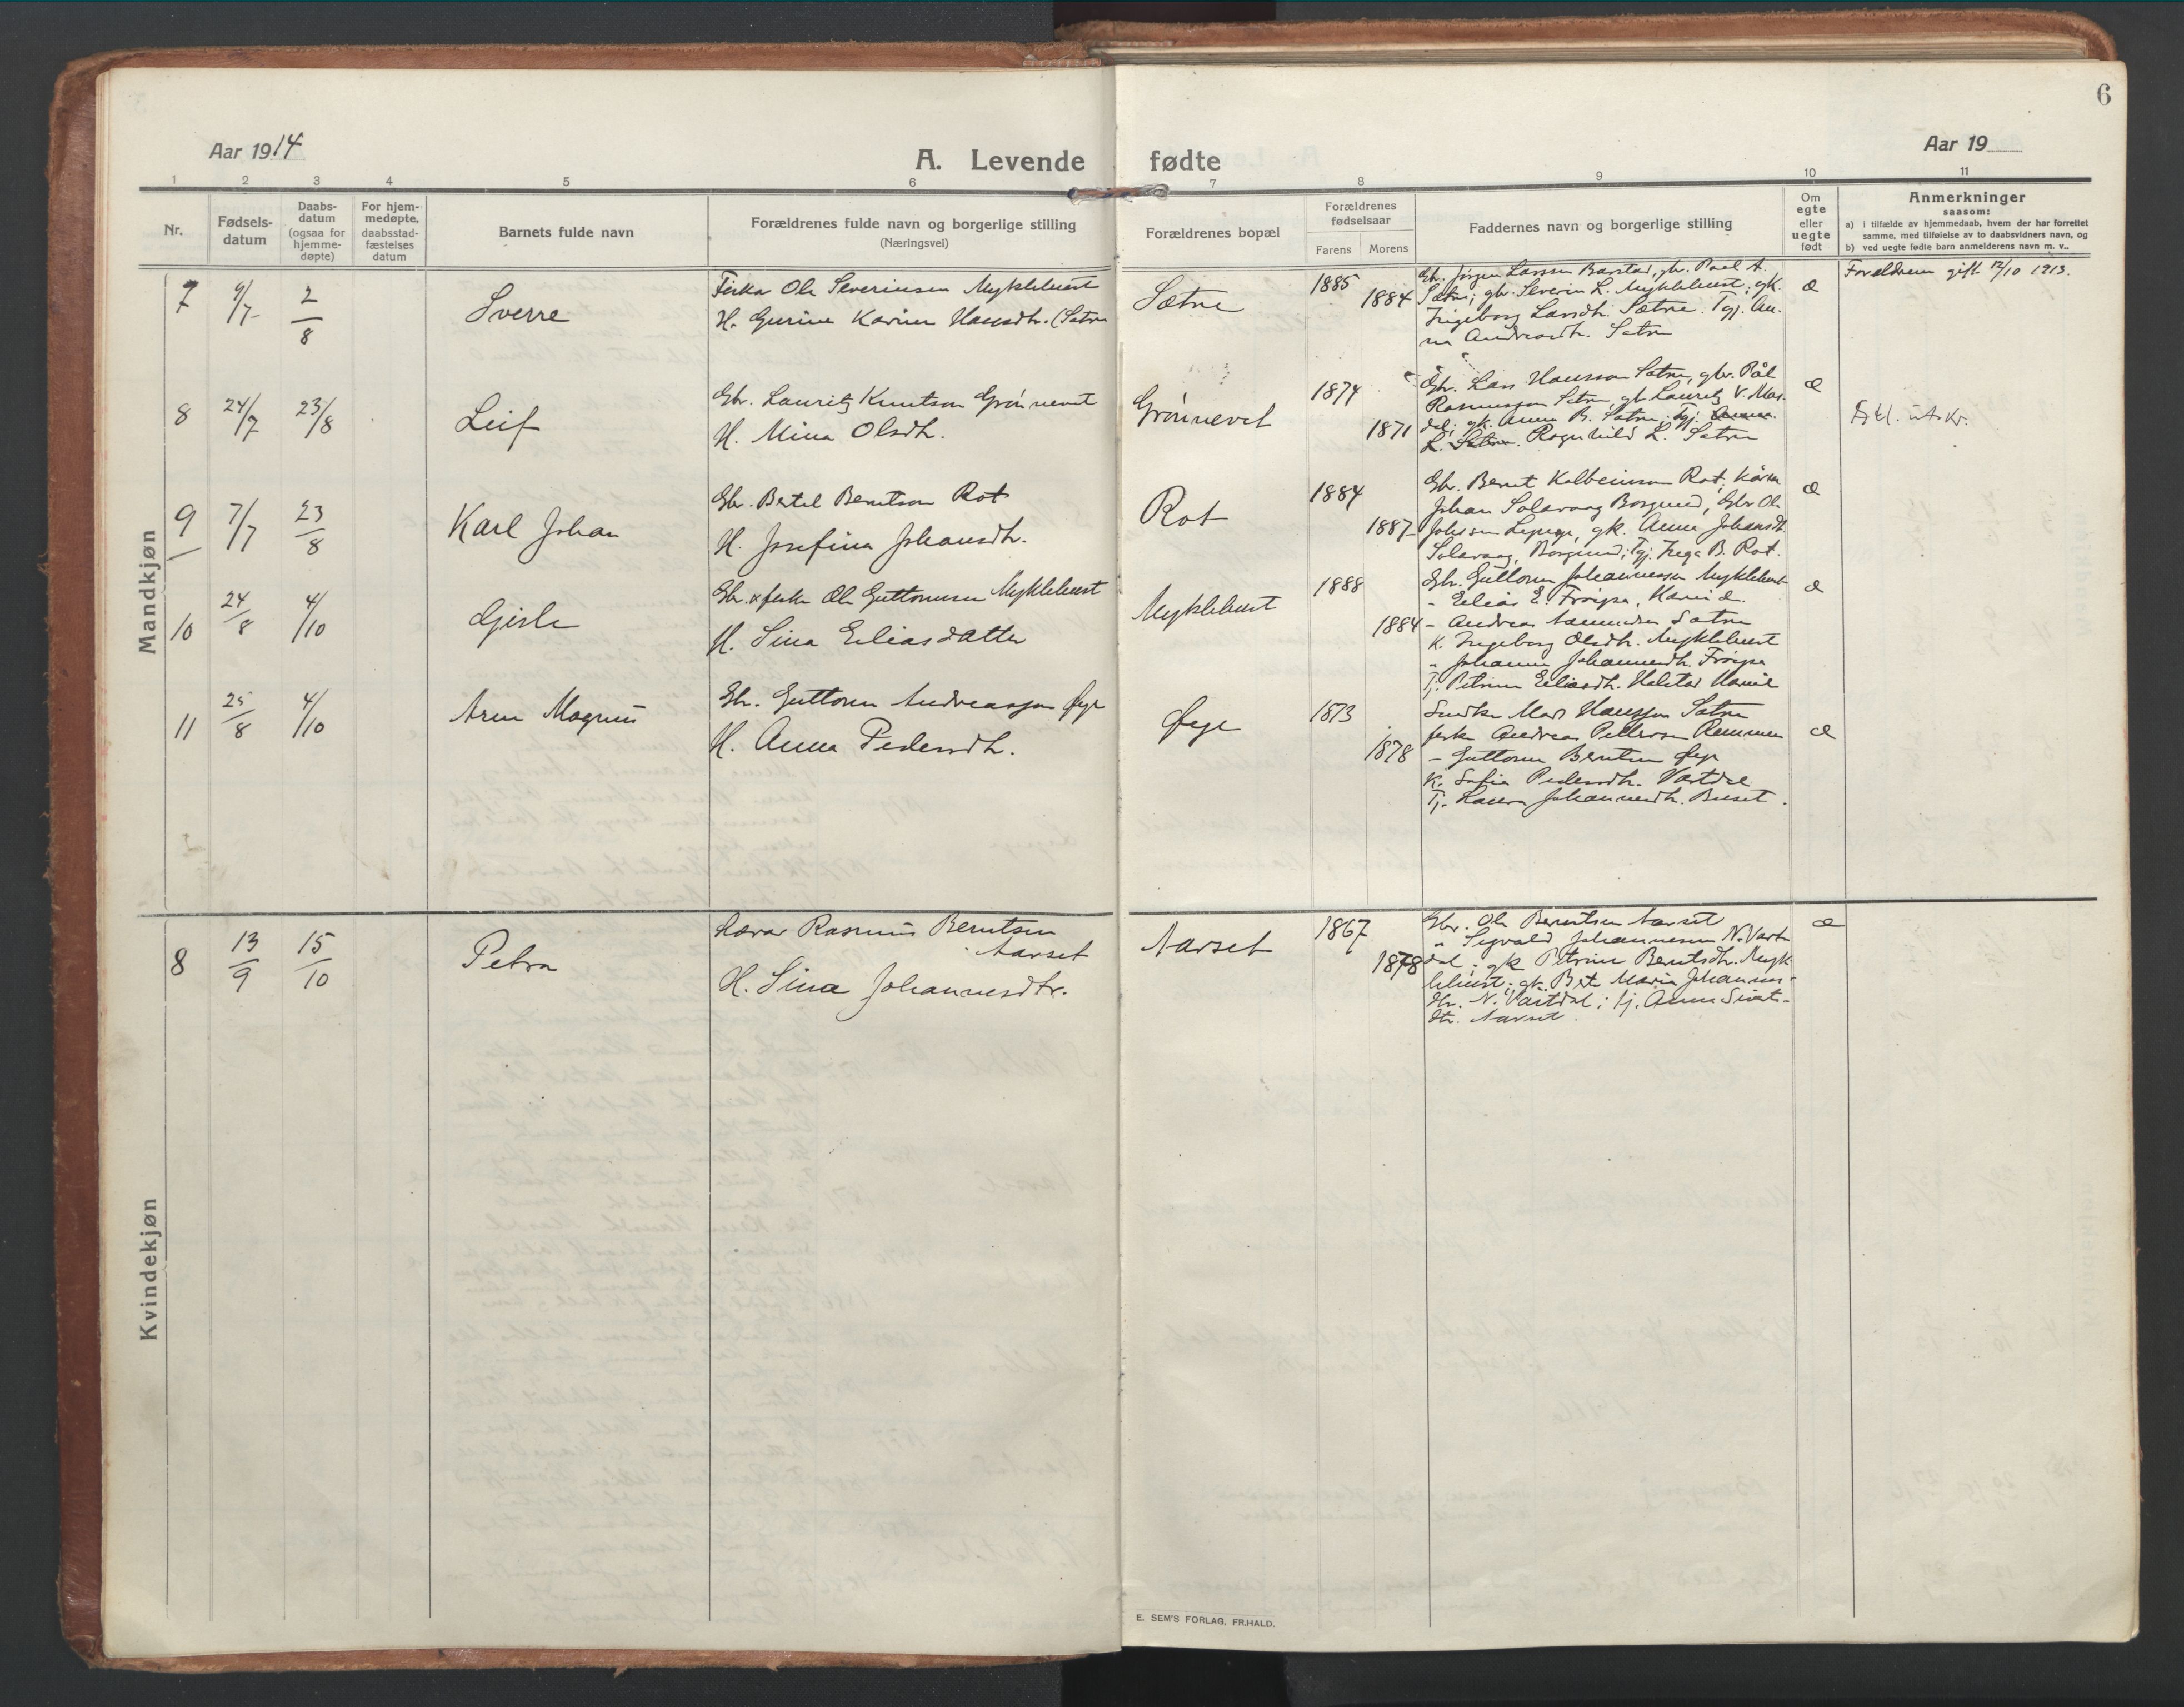 6
Aar 1914
A. Levende fødte
Aar 19
1 2 3 4 5 6 7 8 9 10 11
Nr.
Fødsels-
datum
Daabs-
datum
(ogsaa for
hjemme-
døpte)
For hjem-
medøpte,
daabsstad-
fæstelses
datum
Barnets fulde navn
Forældrenes fulde navn og borgerlige stilling
(Næringsvei)
Forældrenes bopæl
Forældrenes
fødselsaar
Farens Morens
Faddernes navn og borgerlige stilling
Om
egte
eller
uegte
født
Anmerkninger
saasom:
a) i tilfælde av hjemmedaab, hvem der har forrettet
samme, med tilføielse av to daabsvidners navn, og
b) ved uegte fødte barn anmelderens navn m. v..
Mandkjøn
7 9/7 2/8 Sverre
Ole Severinsen Myklebust
H. Gurine Karine Hansdtr. (Sætre
Sætre
1885
1884
Gbr. Jørgen Larssen Barstad, gbr. Paul A.
Sætre; gbr. Severin L. Myklebust; gk.
Ingeborg Larsdtr. Sætre. Tgj. An-
na Andreasdtr. Sætre
æ
Forældrene gift 12/10 1913.
8 24/7 23/8 Leif
Gbr. Lauritz Knutson Grønnevet
H. Mina Olsdtr.
Grønnevet
1874
1871
Gbr. Lars Hansson Sætre, gbr. Pål
Rasmusson Sætre, gb. Lauritz V. Mas-
dal; gk. Anna B. Sætre; Tgj. Anna
L. Sætre. Ragnhild L. Sætre
æ
utskr.
9 7/7 23/8 Karl Johan
Gbr. Bertel Berntson Rot
H. Josefina Johansdtr.
Rot
1884
1887
Gbr. Bernt Kolbeinson Rot;
Johan Solavaag Borgund, Gbr Ole
gk. Anna Johansdt
Solavaag, Borgund; Tgj. Inga B. Rot.
æ
10 24/8 4/10 Gisle
Gbr. & fisker Ole Guttormsen Myklebust
H. Sina Eliasdatter
Myklebust
1888
1884
Gbr. Guttorm Johannessen Myklebust
" Elias E. Hareid.
- Andreas Sætre
K. Ingeborg Olsdtr. Myklebust
" Johanne Johannesdtr.
Tj. Petrine Eliasdtr. Hareid
æ
11 25/8 4/10 Arne Magnus
Gbr. Guttorm Andreassen Øye
H. Anna Pedersdtr.
Øye
1873
1878
Mads Hansson Sætre
fisker Andreas Petterson Remmen
- Guttorm Berntsen Øye
K. Sofie Pedersdtr. Vartdal
Tj. Laura Johannesdtr. Buset.
æ
Kvindekjøn
8 13/9 15/10 Petra
Rasmus Berntsen
Aarset
H. Sina Johannesdtr.
Aarset
1867
1878
Gbr. Ole Berntsen Aarset
" Sigvald Johannesen N. Vart-
dal; gk Petrine Berntsdtr. Myk-
lebust; gk. Berte Maria Johannes-
dtr. N. Vartdal; tj. Anna Sivert-
dtr. Aarset.
æ
E. SEM'S FORLAG, FR.HALD.